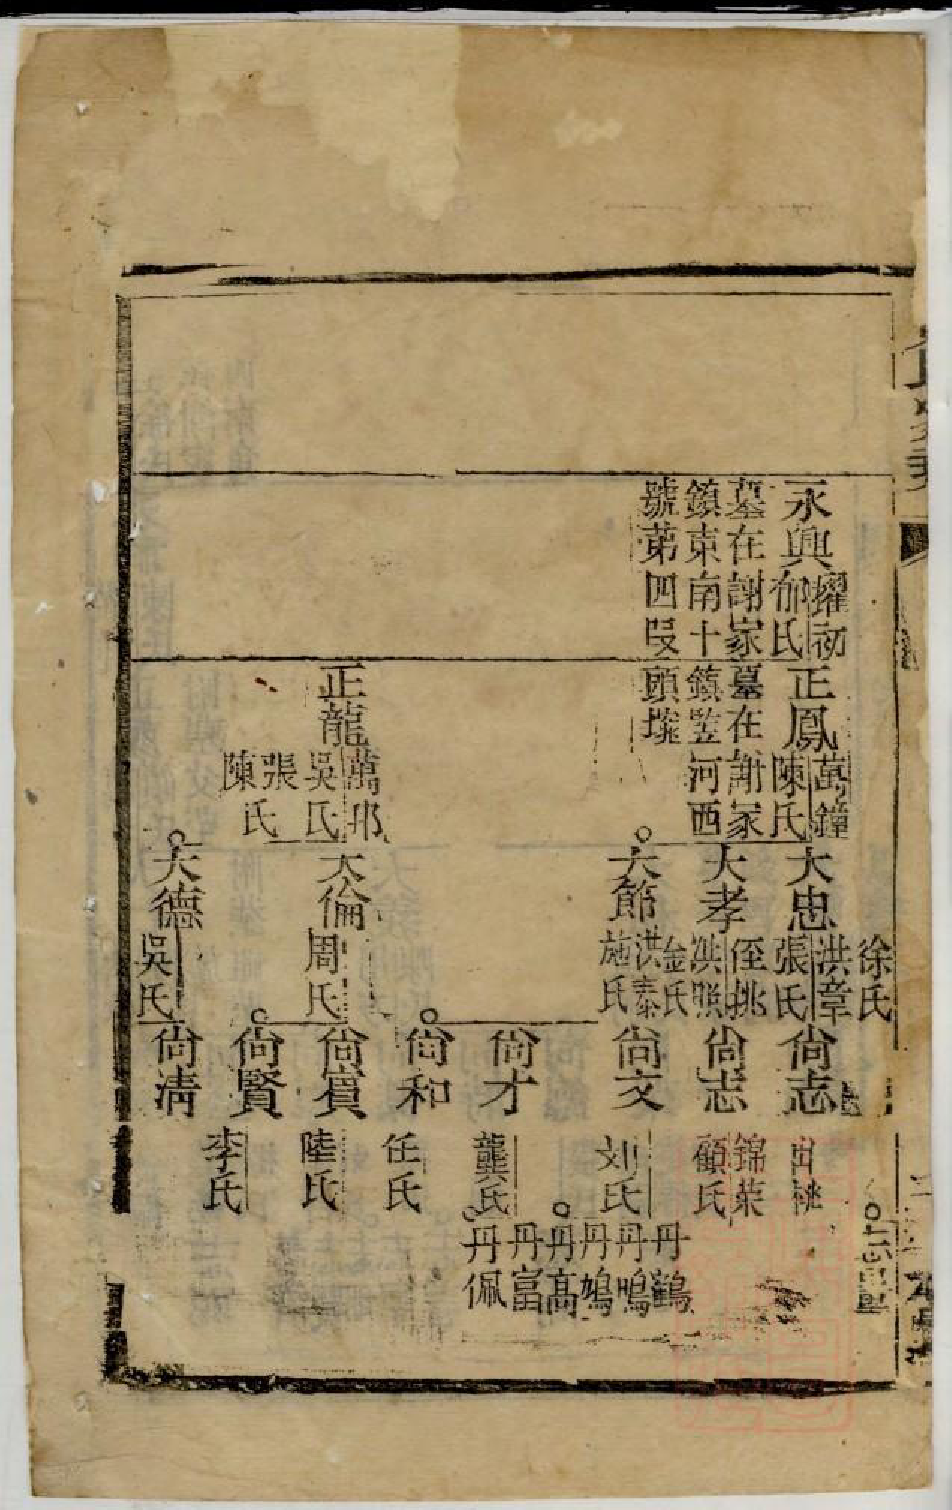 永興
耀初
郁氏
墓在謝家
鎮東南十
號第四叚
正鳳
萬鐘
陳氏
墓在謝家
鎮竖河西
頭墶
正龍
萬邦
吳氏
張
陳氏
徐氏
大忠
洪章
張氏
大孝
侄挑
洪照
金氏
大節
洪泰
施氏
大倫
周氏
大德
吳氏
尙志
出祧
尙志
錦荣
顧氏
尙文
刘氏
尙才
龔氏
尙和
任氏
尙賓
陸氏
尙賢
李氏
尙清
丹鶴
丹鳴
丹鳩
丹高
丹富
丹佩